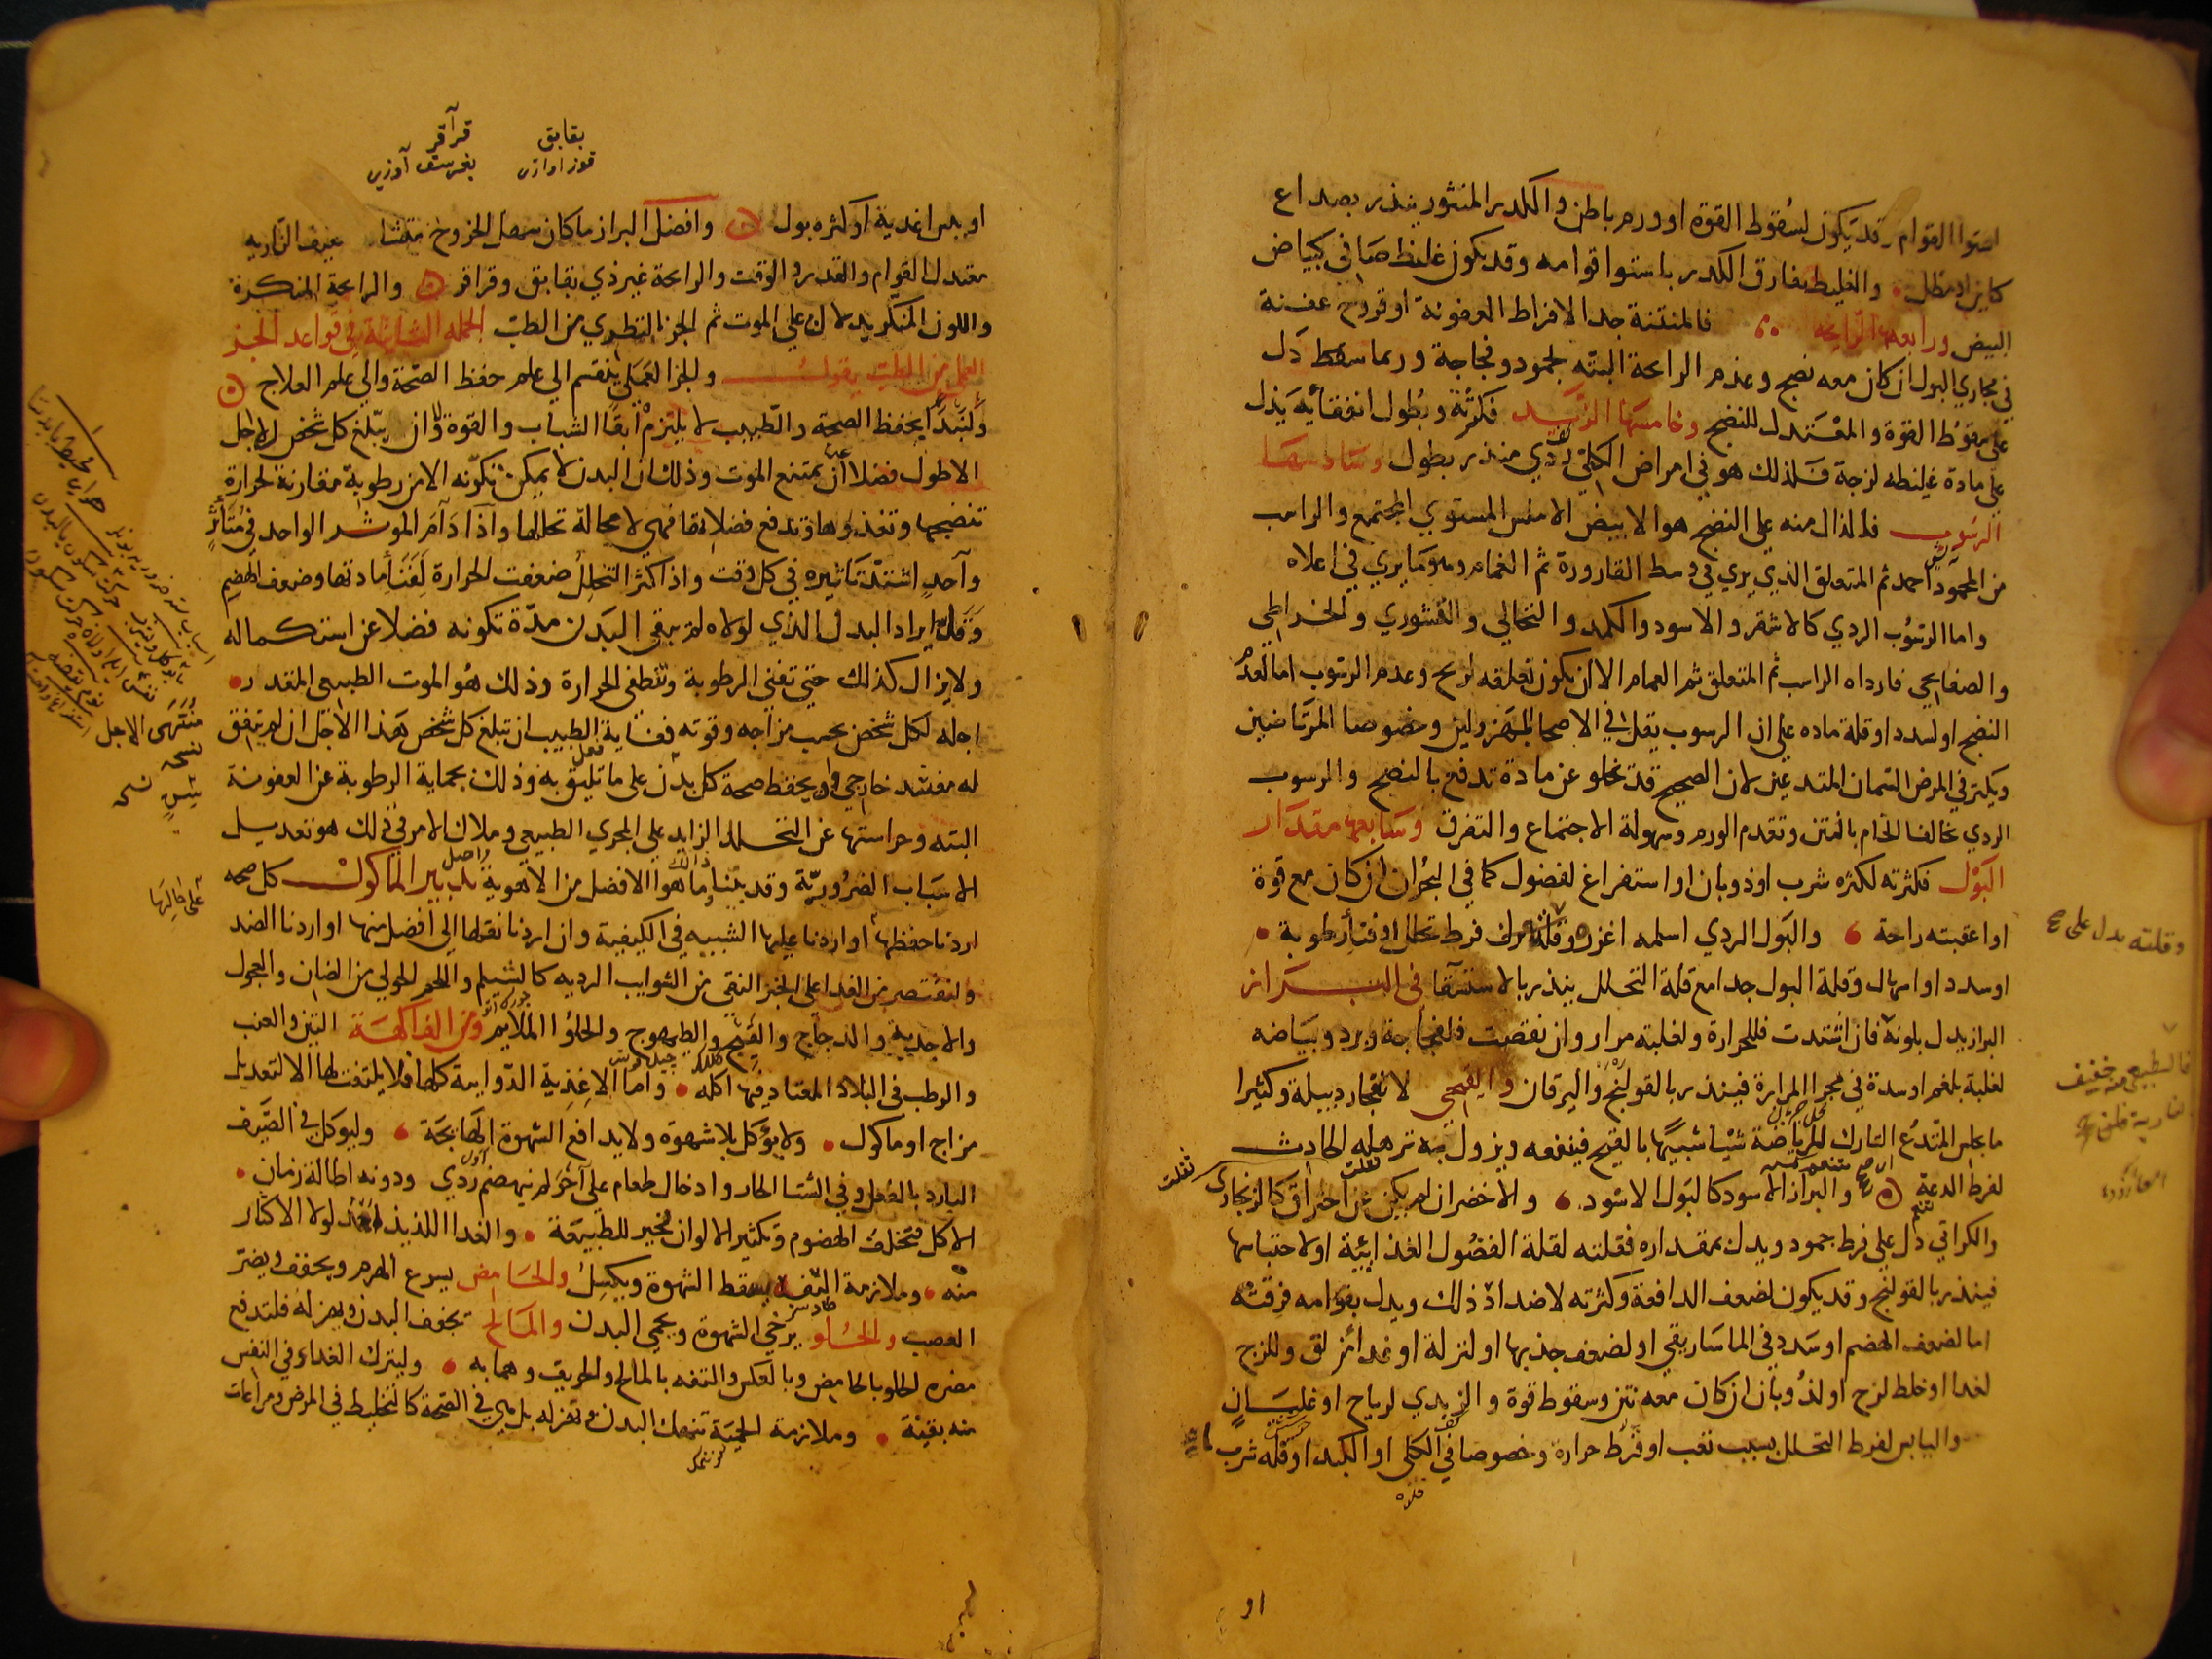 استوا القوام وقد يكون لسقوط القوة او ورم باطن والكدر المنثور ينذر بصداع
كاين او مطل والغليظ يفارق الكدر باستوا قوامه وقد يكون غليظ صافي كبياض
البيض ورابعها الرايحة فالمنتنة جدا لافراط العفونة او قروح عفنة
في مجاري البول ان كان معه نضج وعدم الرايحة البته لجمود وفجاجة وربما سقط دل
على سقوط القوة والمعتدل للنضج وخامسها الزبد فكثرته وبطول انفقائه يدل
على مادة غليظه لزجة فلذلك هو في امراض الكلي ردي منذر بطول وسادسها
الرسوب فالدال منه على النضج هو الابيض الاملس المستوي المجتمع والراسب
من المحمود احمد ثم المتعلق الذي يري في وسط القارورة ثم الغمام وهو ما يري في اعلاه
واما الرسوب الردي كالاشقر والاسود والكمد والنخالي والقشوري والخراطي
والصفايحي فارداه الراسب ثم المتعلق ثم الغمام الا ان يكون تعلقه لريح وعدم الرسوب اما لعدم
النضج او لسدد او قلة ماده على ان الرسوب يقل في الاصحا المهزولين وخصوصا المرتاضين
ويكثر في المرض السمان المتدعين لان الصحيح قد تخلو عن مادة تدفع بالنضج والرسوب
الردي يخالف الخام بالنتن وتقدم الورم وسهولة الاجتماع والتفرق وسابعها مقدار
البول فكثرته لكثره شرب او ذوبان او استفراغ لفضول كما في البحران ان كان مع قوة
او اعقبته راحة والبول الردي اسلمه اغزره وقلة شرب فرط تحلل او فنا رطوبة
وقلته يدل على
او سدد او اسهال وقلة البول جدا مع قلة التحلل ينذر بالاستسقا في البراز
البراز يدل بلونه فان اشتدت فللحرارة ولغلبته مرار وان نقصت فلفجاجة وبرد وبياضه
فالطبيعي منه خفيف
لغلبة بلغم او سدة في مجرا المرارة فينذر بالقولنج واليرقان والقيحي لانفجار دبيلة وكثيرا
ما يجلس المتدع التارك للرياضة شيا شبيها بالقيح فينفعه ويزول به ترهله الحادث
لفرط الدعة والبراز الاسود كالبول الاسود والاخضر ان لم يكن عن احتراق كالزنجاري
والكراثي دل على فرط جمود ويدل بمقداره فقلته لقلة الفضول الغذائية او لاحتباسها
فينذر بالقولنج وقد يكون لضعف الدافعة وكثرته لاضداد ذلك ويدل بقوامه فرقته
اما لضعف الهضم او سدد في الماساريقي او لضعف جذبها او لنزلة او غدا مزلق واللزج
لغدا او خلط لزج او لذوبان ان كان معه نتن وسقوط قوة والزبدي لرياح او غليان
واليابس لفرط التحلل بسبب تعب او فرط حرارة وخصوصا في الكلى او الكبد او قلة شرب
او
بقابق
قرآقر
او يبس اغدية او كثره بول وافضل البراز ما كان سهل الخروج متشابه خفيف النارية
معتدل القوام والقدر والوقت والرايحة غير ذي بقابق وقراقر والرايحة المنكرة
واللون المنكر يدلان على الموت ثم الجز النظري من الطب الجملة الثانية في قواعد الجز
العملي من الطب يقول والجز العملي ينقسم الي علم حفظ الصحة والي علم العلاج
ولنبدا بحفظ الصحة والطبيب لا يلتزم ابقا الشباب والقوة ولا ان يبلغ كل شخص الاجل
الاطول فضلا عن ان يمتنع الموت وذلك ان البدن لا يمكن تكونه الا من رطوبة مقارنة لحرارة
تنضجها وتغذوها وتدفع فضلاتها فهي لا محالة تحللها واذا دام الموثر الواحد في متاثر
واحد اشتدت تاثيره في كل وقت واذا كثر التحلل ضعفت الحرارة لفنا مادتها وضعف الهضم
وقل ايراد البدل الذي لولاه لم يبقي البدن مدة تكونه فضلا عن استكماله
ولا يزال كذلك حتي تفني الرطوبة وتنطفي الحرارة وذلك هو الموت الطبيعي المقدر
اجله لكل شخص بحسب مزاجه وقوته فغاية الطبيب ان تبلغ كل شخص هذا الاجل ان لم يتفق
منتهى الاجل
نسخه
له مفسد خارجي وان يحفظ صحة كل بدن على ما تليق به وذلك بحماية الرطوبة عن العفونة
البته وحراستها عن التحلل الزايد على المجري الطبيعي وملاك الامر في ذلك هو تعديل
الاسباب الضرورية وقد بينا ما هو الافضل من الاهوية تدبير الماكول كل صحه
على حالها
اردنا حفظها او اردنا عليها الشبيه في الكيفية وان اردنا نقلها الي افضل منها اوردنا الضد
ولنقتصر من الغدا على الخبز النقي من الشوايب الرديه كالشيلم واللحم الحولي من الضان والعجول
والاجدية والدجاج والقبج والطيهوج والحلوا الملايم ومن الفاكهة التين والعنب
والرطب في البلاد المعتاد فيها اكله واما الاغذية الدوايية كلها فلا يلتفت لها الا لتعديل
مزاج او ماكول ولا يؤكل بلا شهوة ولا يدافع الشهوة الهايجة وليوكل في الصيف
البارد بالفعل وفي الشتا الحار وادخال طعام على آخر لم ينهضم ردي ودونه اطالة زمان
الاكل فتختلف الهضوم وتكثير الالوان محير للطبيعة والغدا اللذيذ احمد لولا الاكثار
منه وملازمة التفه يسقط الشهوة ويكسل والحامض يسرع الهرم ويجفف ويضر
العصب والحلو يرخي الشهوة ويحمي البدن والمالح يجفف البدن ويهزله فلتدفع
مضره الحلو بالحامض وبالعكس والتفه بالمالح والحريف وهما به وليترك الغداء وفي النفس
منه بقية وملازمة الحمية تنهك البدن وتهزله بل هي في الصحة كالتخليط في المرض ومراعات